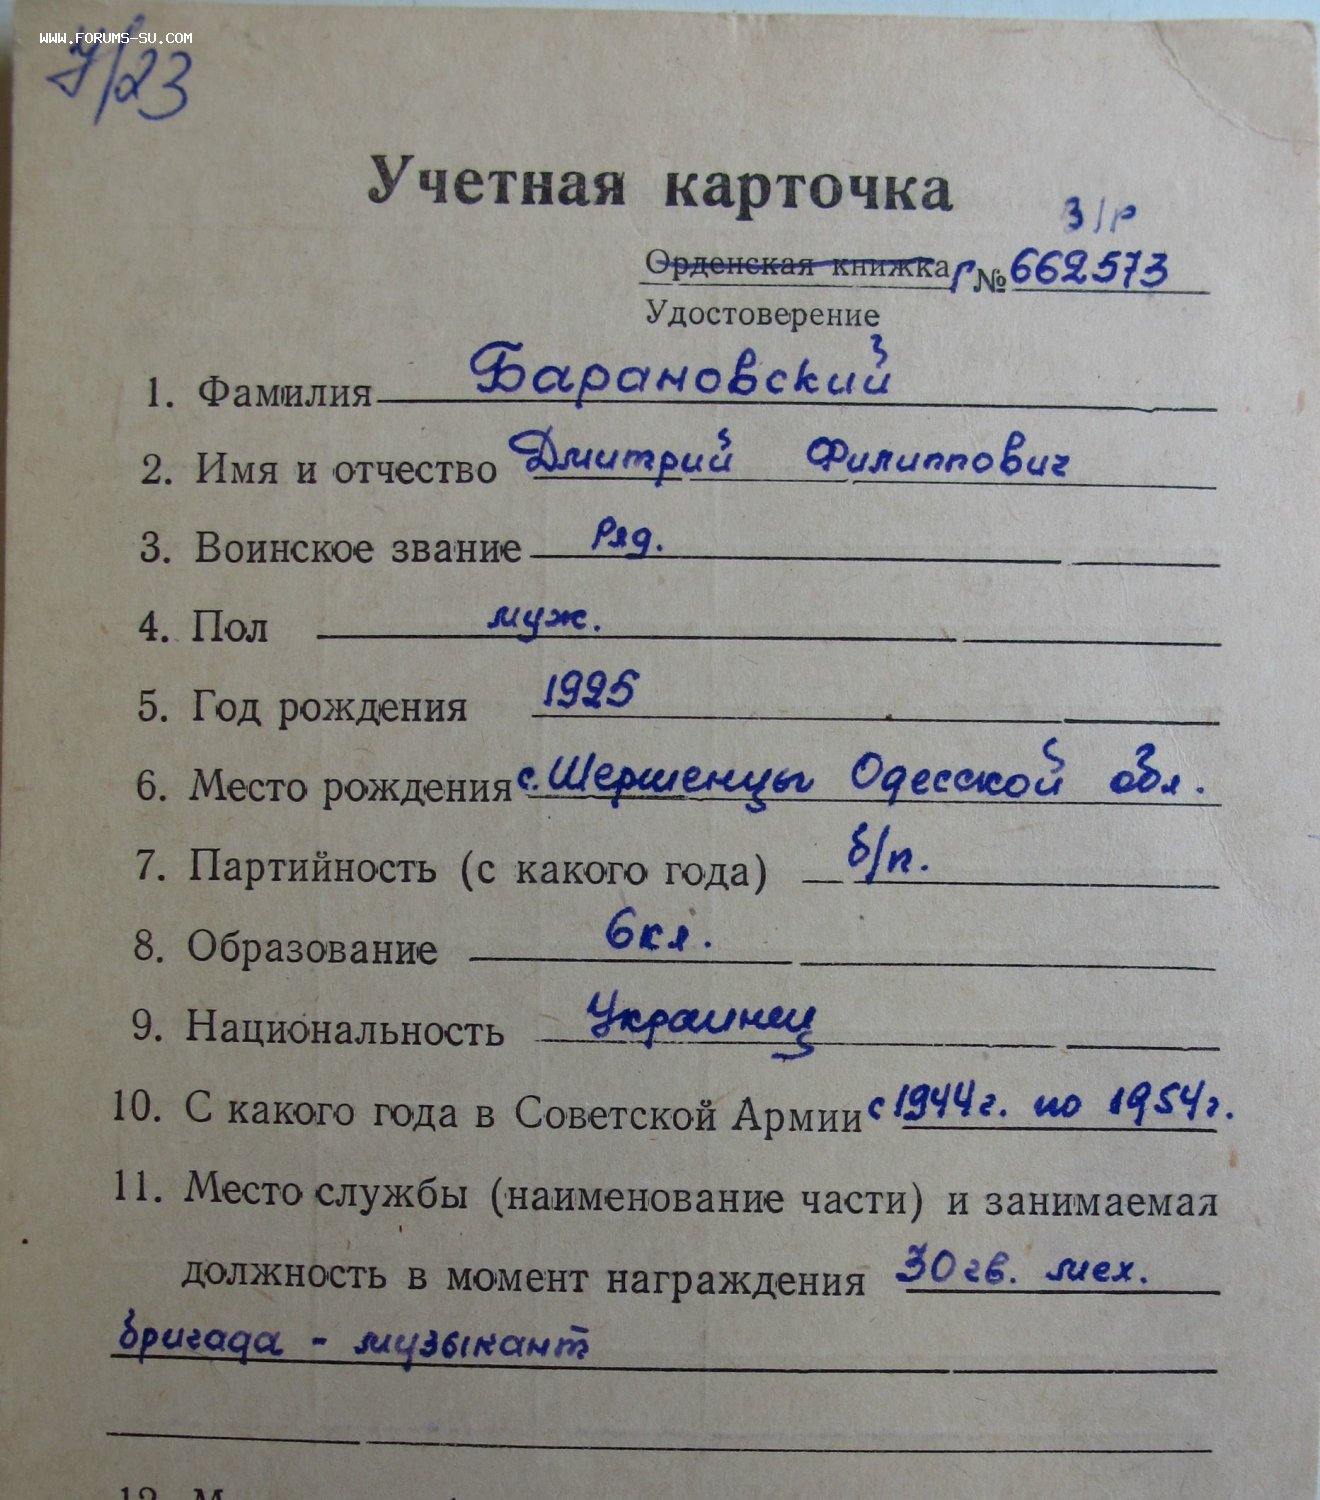 www.forums-su.com
7/23
Учетная карточка
З/Р
Орденская книжка г № 662573
Удостоверение
1. Фамилия Барановский
2. Имя и отчество Дмитрий Филиппович
3. Воинское звание Ряд.
4. Пол муж.
5. Год рождения 1925
6. Место рождения с. Шершенцы Одесской обл.
7. Партийность (с какого года) б/п.
8. Образование 6 кл.
9. Национальность Украинец
10. С какого года в Советской Армии с 1944 г. по 1954 г.
11. Место службы (наименование части) и занимаемая
должность в момент награждения 30 гв. мех.
бригада - музыкант